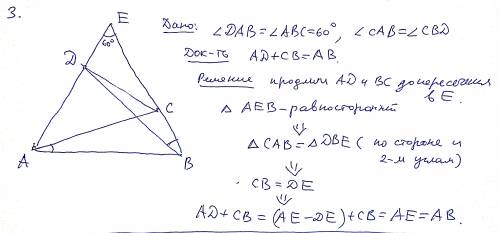 3.
Дано: ∠DAB=∠ABC=60°, ∠CAB=∠CBD
Док-ть AD+CB=AB.
Решение продлим AD и BC до пересечения
в E.
△ AEB – равносторонний
⇓
△CAB=△DBE (по стороне и
2-м углам)
⇓
CB=DE
⇓
AD+CB=(AE-DE)+CB=AE=AB.
E
60°
D
C
A
B